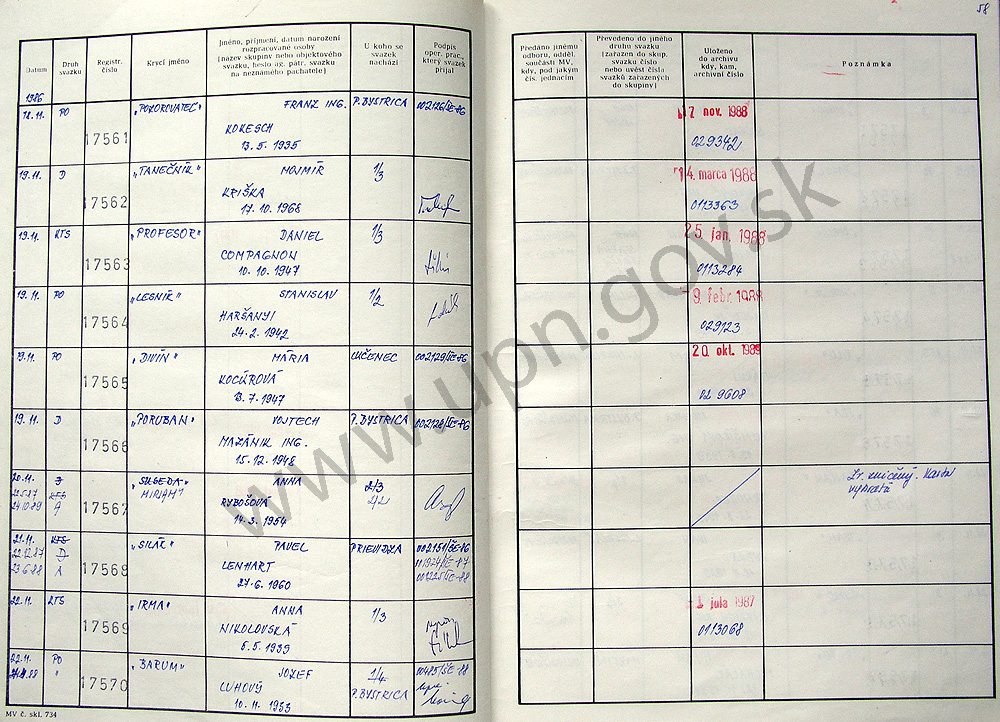 58
Datum
Druh svazku
Registr. číslo
Krycí jméno
Jméno, příjmení, datum narození
rozpracované osoby
(název skupiny nebo objektového
svazku, heslo ag. pátr. svazku
na neznámého pachatele)
U koho se
svazek
nachází
Podpis
oper. prac.,
který svazek
přijal
Předáno jinému
odboru, odděl.
součásti MV,
kdy, pod jakým
čís. jednacím
Převedeno do jiného
druhu svazku
(zařazen do skup.
svazku číslo
nebo uvést čísla
svazků zařazených
do skupiny)
Uloženo
do archivu
kdy, kam,
archivní číslo
Poznámka
1986
18.11. PO 17561 "POZOROVATEĽ" FRANZ ING. P. BYSTRICA 002126/ŠE-86 17 nov. 1988
KOKESCH
13.5.1935 029342
19.11. D 17562 "TANEČNÍK" MOJMÍR 1/3 14. marca 1988
KRIŠKA
17.10.1968 0113363
19.11. KTS 17563 "PROFESOR" DANIEL 1/3 25. jan. 1988
COMPAGNON
10.10.1947 0113284
19.11. PO 17564 "LESNÍK" STANISLAV 1/2 9. febr. 1988
HARŠANYI
24.2.1942 029123
19.11. PO 17565 "DIVÍN" MÁRIA LUČENEC 002129/ŠE-86 20 okt. 1989
KOCÚROVÁ
8.7.1947 029608
19.11. D 17566 "PORUBAN" VOJTECH P. BYSTRICA 002128/ŠE-86
MAZÁNIK ING.
15.12.1948
20.11. 17567 ANNA 2/3
24.10.89 A MIRIAM" RYBOŠOVÁ
14.3.1954
Zv. zničený. Karta
21.11. KTS 17568 "SILÁK" PAVEL PRIEVIDZA 002151/ŠE-86
22.12.87 D LENHART 001924/ŠE-87
23.6.88 A 27.6.1960 001225/ŠE-88
22.11. KTS 17569 "IRMA" ANNA 1/3 1 júla 1987
NIKOLOVSKÁ
5.5.1939 0113068
22.11. PO 17570 "BARUM" JOZEF 1/4 00485/ŠE-88
LUHOVÝ P. BYSTRICA
10.11.1953
MV č. skl. 734
www.upn.gov.sk